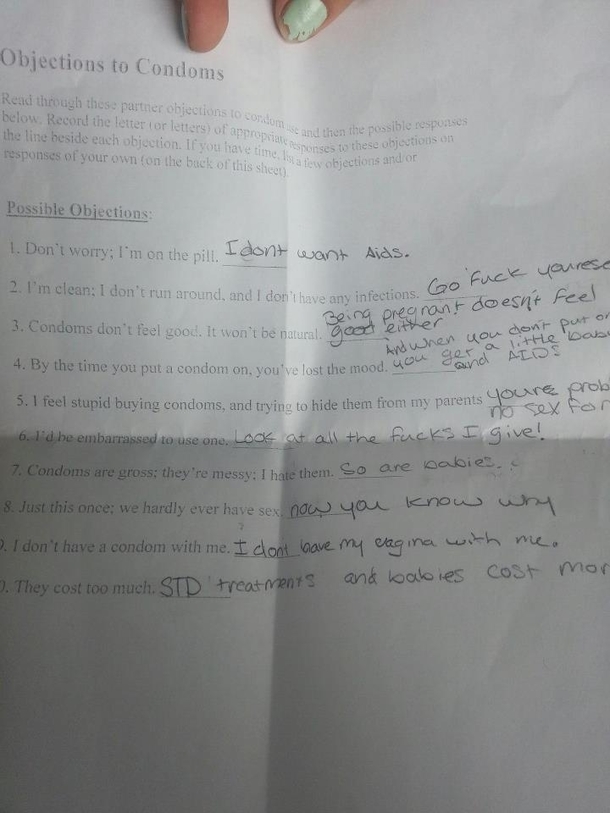 Objections to Condoms
Read through these partner objections to condom use and then the possible responses
below. Record the letter (or letters) of appropriate responses to these objections on
the line beside each objection. If you have time, list a few objections and/or
responses of your own (on the back of this sheet).
Possible Objections:
1. Don't worry; I'm on the pill. I dont want Aids.
2. I'm clean; I don't run around, and I don't have any infections. Go Fuck yourese
3. Condoms don't feel good. It won't be natural. Being pregnant doesn't feel
good either
4. By the time you put a condom on, you've lost the mood. And when you don't put on
you get a little bab
and AIDS
5. I feel stupid buying condoms, and trying to hide them from my parents youre prob
no sex For
6. I'd be embarrassed to use one. Look at all the fucks I give!
7. Condoms are gross; they're messy; I hate them. So are babies.
8. Just this once; we hardly ever have sex. now you know why
9. I don't have a condom with me. I dont have my vagina with me.
0. They cost too much. STD treatments and babies cost mor